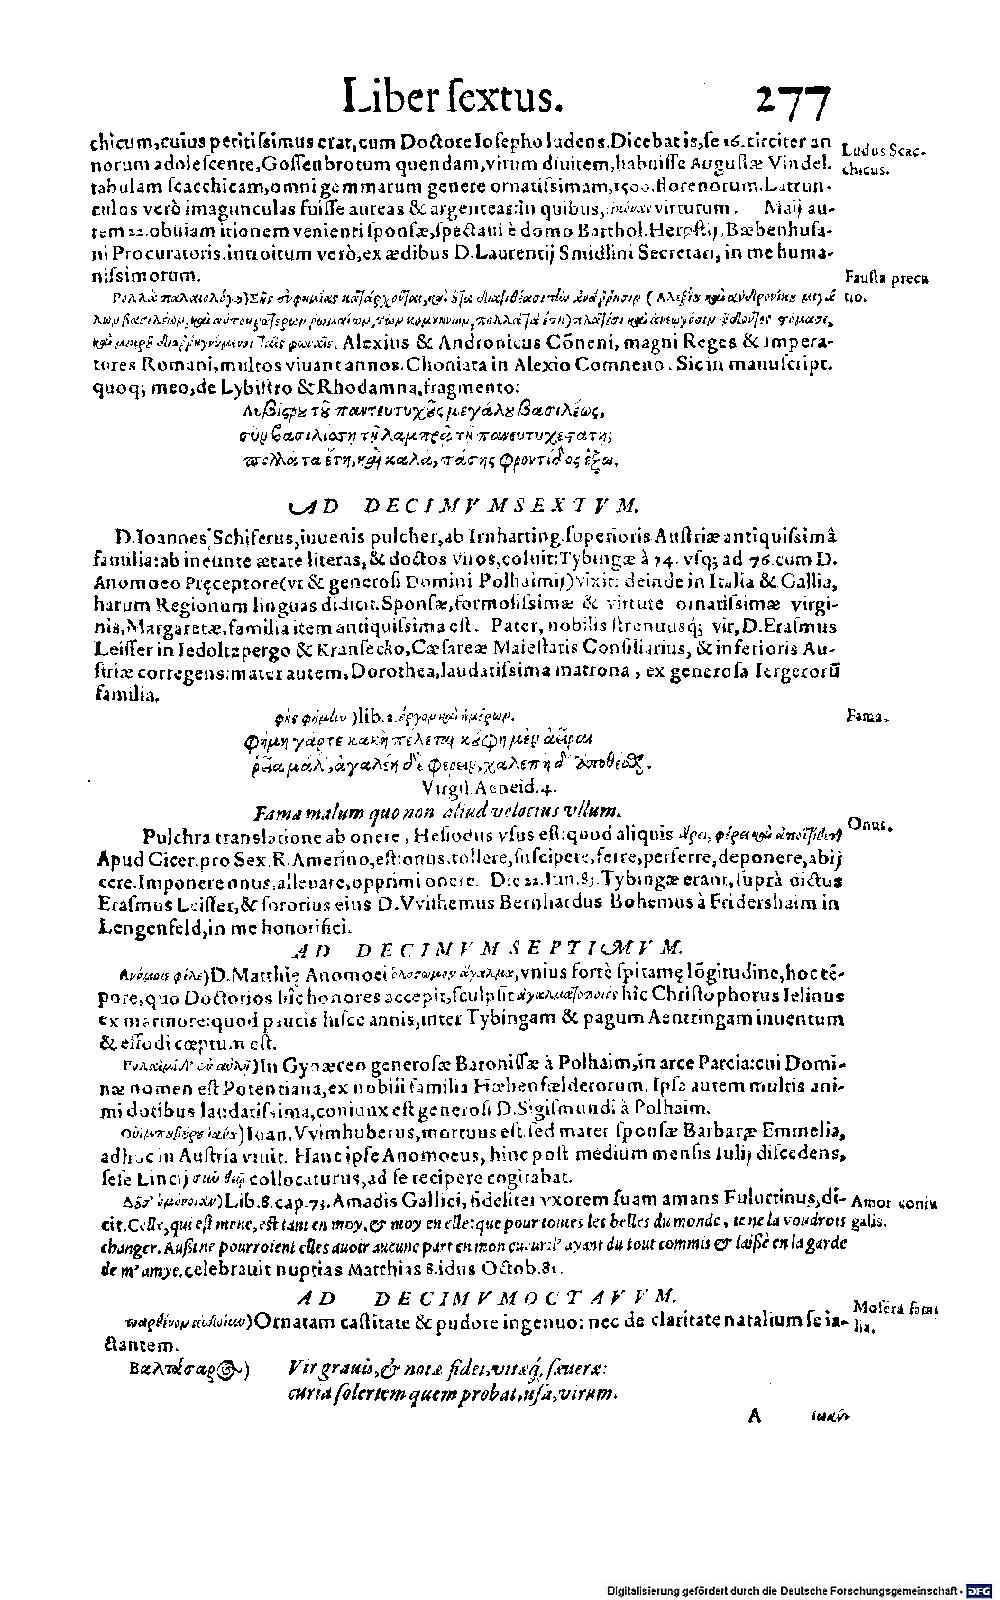 Liber ſextus. 277
chicum, cuius peritiſsimus erat, cum Doctore Ioſepho ludens. Dicebat is, ſe 16. circiter an
norum adoleſcente, Goſſenbrotum quendam, virum diuitem, habuiſſe Auguſtæ Vindel.
Ludus Scac-
chicus.
tabulam ſcacchicam, omni gemmarum genere ornatiſsimam, 1500. florenorum. Latrun-
culos verò imagunculas fuiſſe aureas & argenteas: in quibus, virtutum. Maij au-
tem 22. obuiam itionem venienti ſponſæ, ſpectaui è domo Barthol. Herpſtij, Bæbenhuſa-
ni Procuratoris. introitum verò, ex ædibus D. Laurentij Smidlini Secretarij, in me huma-
niſsimorum.
Fauſta preca
tio.
Alexius & Andronicus Cõneni, magni Reges & impera-
tores Romani, multos viuant annos. Choniata in Alexio Comneno. Sic in manuſcript.
quoq; meo, de Lybiſtro & Rhodamna, fragmento:
Λιβίςρȣ τȣ͂ παντευτυχοῦς μεγάλȣ βασιλέως,
λαμπρῶ τῆ πανευτυχεςάτη;
πολλὰ τὰ ἔτη, καὶ καλὰ, πάσης φροντίδος ἔξω.
AD DECIMVMSEXTVM.
D. Ioannes Schiferus, iuuenis pulcher, ab Irnharting. ſuperioris Auſtriæ antiquiſsimâ
familia: ab ineunte ætate literas, & doctos viros, coluit: Tybingæ à 74. vſq; ad 76. cum D.
Anomoeo Pręceptore (vt & generoſi Domini Polhaimij) vixit: deinde in Italia & Gallia,
harum Regionum linguas didicit. Sponſæ, formoſiſsimæ & virtute ornatiſsimæ virgi-
nis, Margaretæ, familia item antiquiſsima eſt. Pater, nobilis ſtrenuusq; vir, D. Eraſmus
Leiſſer in Iedoltzpergo & Kranſecko, Cæſareæ Maieſtatis Conſiliarius, & inferioris Au-
ſtriæ corregens: mater autem, Dorothea, laudatiſsima matrona, ex generoſa Iergerorũ
familia.
lib. 2. ἔργων καὶ ἡμερῶν.
Fama.
φήμη γάρ τε κακὴ πέλεται, κούφη μὲν ἀεῖραι
ῥεῖα μάλ', ἀργαλέη δὲ φέρειν, χαλεπὴ δ' ἀποθέσθαι.
Virgil. Aeneid. 4.
Fama malum quo non aliud velocius vllum.
Pulchra translatione ab onere, Heſiodus vſus eſt: quod aliquis
Onus.
Apud Cicer. pro Sex. R. Amerino, eſt: onus, tollere, ſuſcipere, ferre, perferre, deponere, abij
cere. Imponere onus, alleuare, opprimi onere. Die 22. Iun. 83. Tybingæ erant, ſuprà dictus
Eraſmus Leiſſer, & ſororius eius D. Vvilhemus Bernhardus Bohemus à Fridershaim in
Lengenfeld, in me honorifici.
AD DECIMVMSEPTIMVM.
Ανόμοιε φίλε) D. Matthię Anomoei ὁλόσωμον ἄγαλμα, vnius fortè ſpitamę lõgitudine, hoc tẽ-
pore, quo Doctorios hîc honores accepit, ſculpſit ἀγαλματοποιὸς hîc Chriſtophorus Ielinus
ex marmore: quod paucis huſce annis, inter Tybingam & pagum Aentringam inuentum
& effodi cœptum eſt.
In Gynæceo generoſæ Baroniſſæ à Polhaim, in arce Parcia: cui Domi-
næ nomen eſt Potentiana, ex nobili familia Hæbenfælderorum. Ipſa autem multis ani-
mi dotibus laudatiſsima, coniunx eſt generoſi D. Sigiſmundi à Polhaim.
Ioan. Vvimhuberus, mortuus eſt. ſed mater ſponſæ Barbaræ Emmelia,
adhuc in Auſtria viuit. Hanc ipſe Anomoeus, hinc poſt medium menſis Iulij diſcedens,
ſeſe Lincij σὺν θεῷ collocaturus, ad ſe recipere cogitabat.
Lib. 8. cap. 73. Amadis Gallici, fideliter vxorem ſuam amans Fulurtinus, di-
Amor coniu
galis.
cit. Celle, qui eſt mene, eſt tant en moy, & moy en elle: que pour toutes les belles du monde, ie ne la voudrois
changer. Außi ne pourroient elles auoir aucune part en mon cueur: l' ayant du tout commis & laißé en la garde
de m' amye. celebrauit nuptias Matthias 8. idus Octob. 81.
AD DECIMVMOCTAVVM.
Ornatam caſtitate & pudore ingenuo: nec de claritate natalium ſe ia-
ctantem.
Βαλτάσαρος)
Vir grauis, & notæ fidei, vitæq́, ſeueræ:
curia ſolertem quem probat, uſa, virum.
A